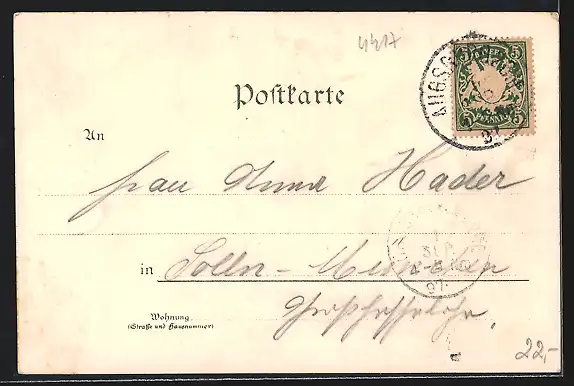 4417
BAYERN
5 5
5 PFENNIG 5
AUGSB
97
Postkarte
An
Frau Anna Hader
in Solln - München
Großhesselohe.
SEP
97
Wohnung
(Straße und Hausnummer)
22,-